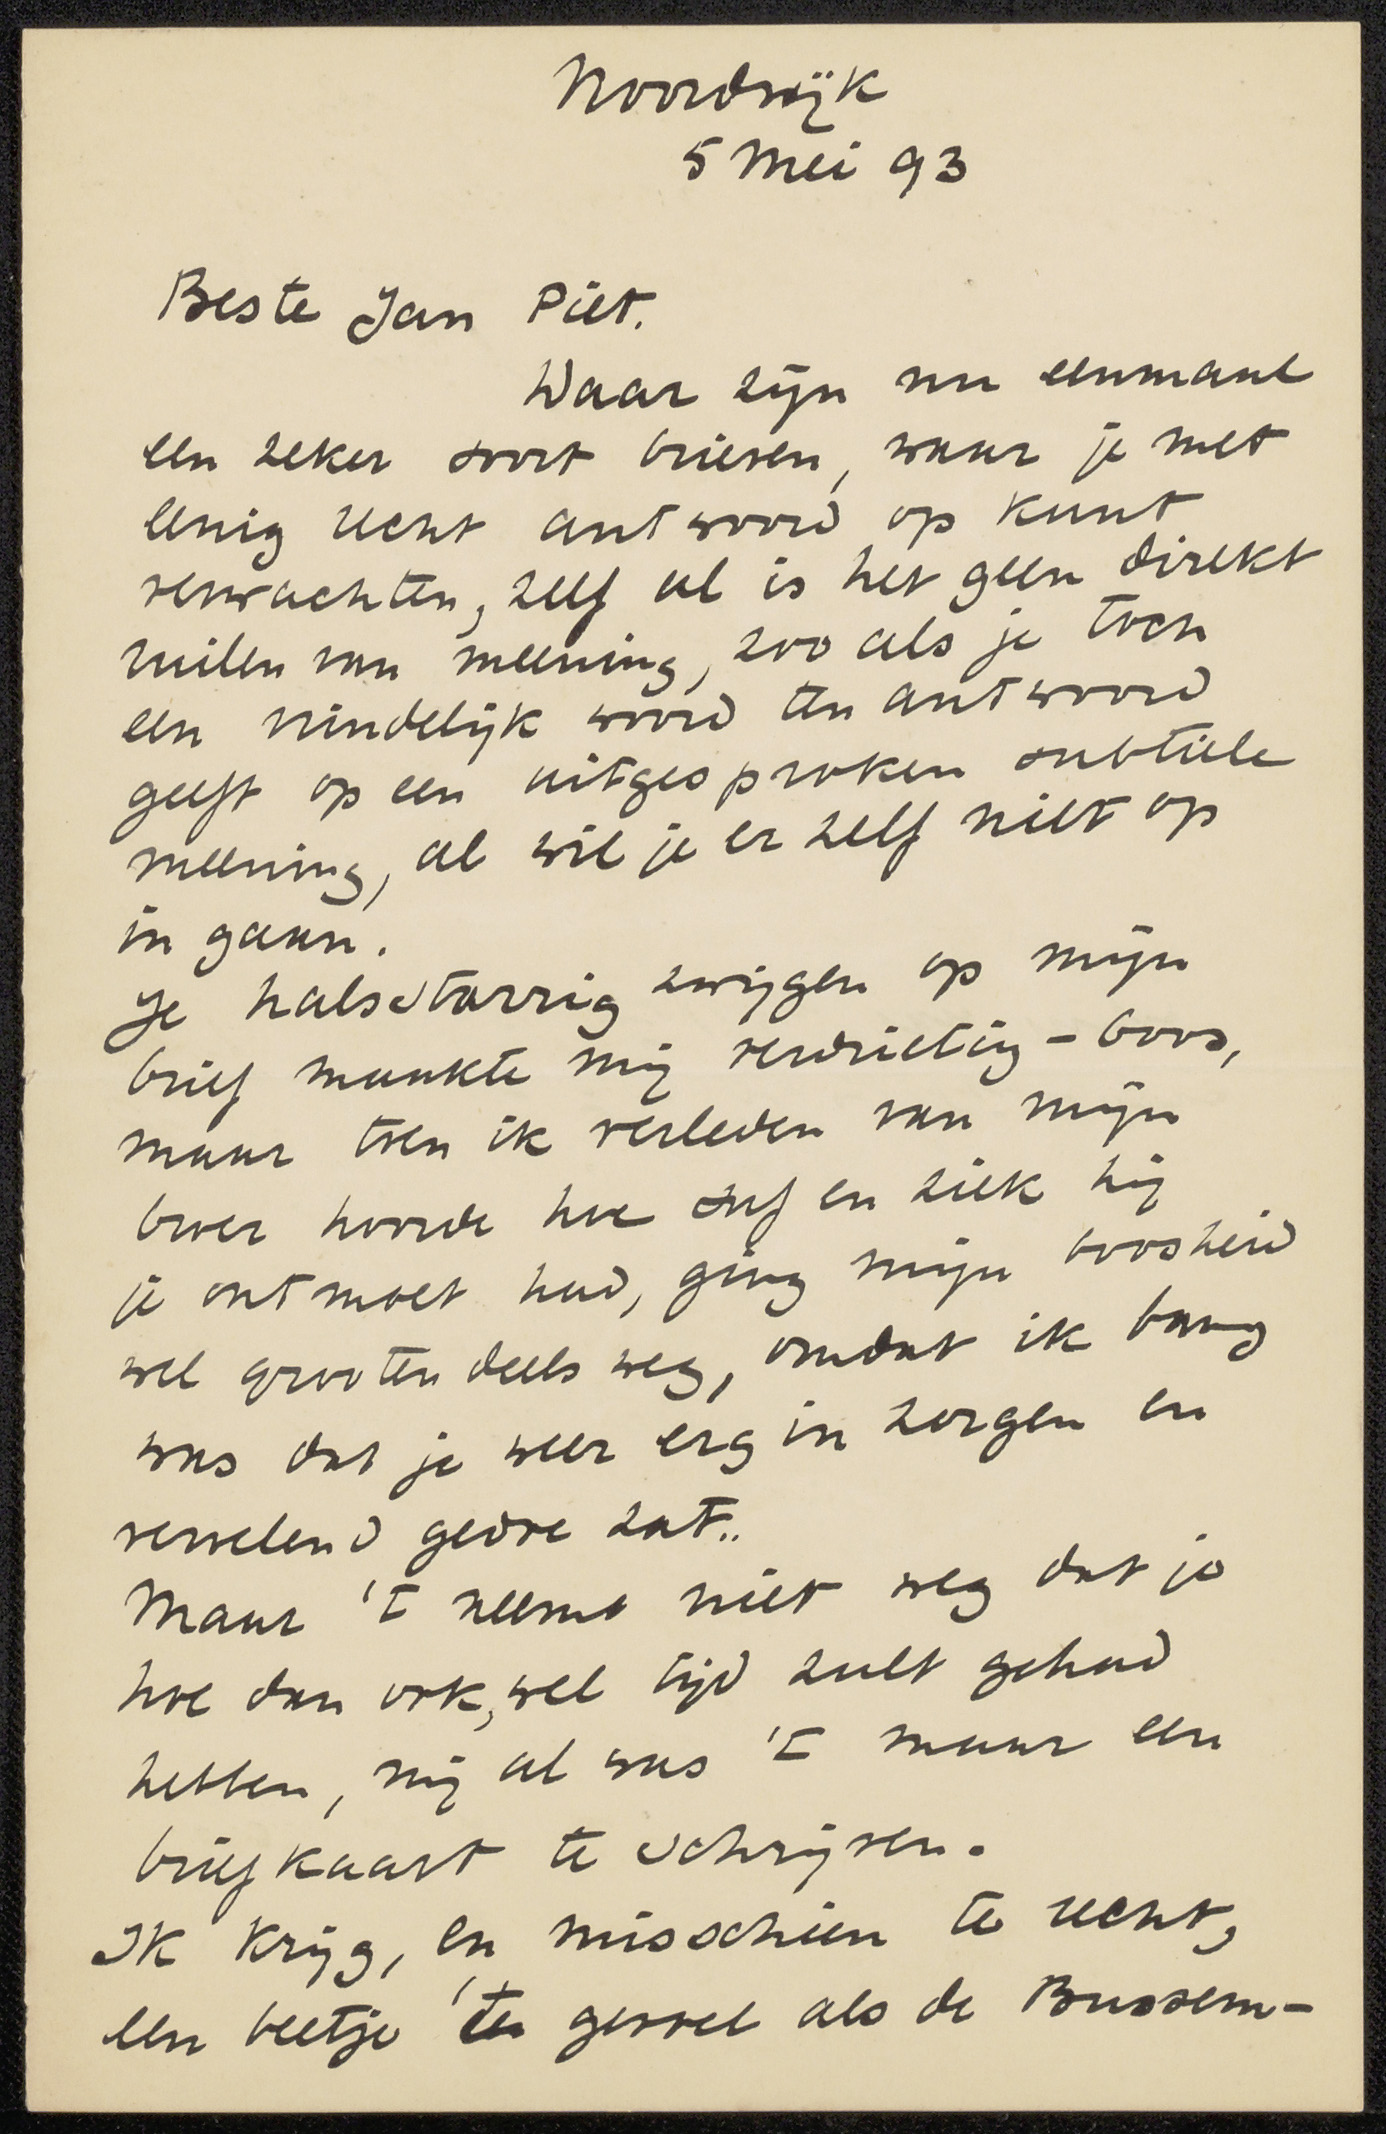 Noordwijk
5 Mei 93
Beste Jan Piet.
Daar zijn nu eenmaal
een zeker soort brieven, waar je met
eenig recht antwoord op kunt
verwachten, zelf al is het geen direkt
ruilen van meening, zoo als je toch
een vrindelijk woord ten antwoord
geeft op een uitgesproken subtiele
meening, al wil je er zelf niet op
in gaan.
Je halsstarrig zwijgen op mijn
brief maakte mij verdrietig-boos,
maar toen ik verleden van mijn
broer hoorde hoe suf en ziek hij
je ontmoet had, ging mijn boosheid
wel grooten deels weg, omdat ik bang
was dat je weer erg in zorgen en
vervelend gedoe zat..
Maar 't neemt niet weg dat je
hoe dan ook, wel tijd zult gehad
hebben, mij al was 't maar een
briefkaart te schrijven.
Ik krijg, en misschien te recht,
een beetje 't gevoel als de Bussem-